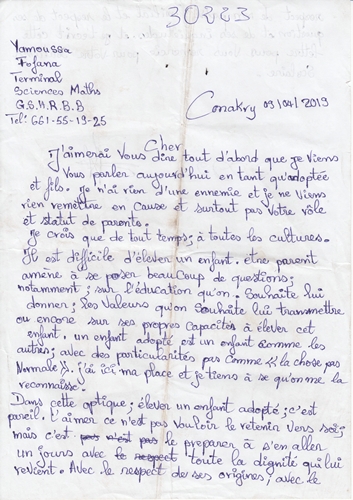 30223
Yamoussa
Fofana
Terminal
Sciences Maths
G.S.H.R.B.B
Tel: 661-55-19-25
Conakry 09/04/2019
Cher
J'aimerai vous dire tout d'abord que je viens
vous parler aujourd'hui en tant qu'adoptée
et fils. Je n'ai rien d'une ennemie et je ne viens
rien remettre en cause et surtout pas votre rôle
et statut de parents.
Je crois que de tout temps; à toutes les cultures.
Il est difficile d'élever un enfant. être parent
amène à se poser beaucoup de questions;
notamment; sur l'éducation qu'on. Souhaite lui
donner; les valeurs qu'on souhaite lui transmettre
ou encore sur ses propres capacités à élever cet
enfant. un enfant adopté est un enfant comme les
autres; avec des particularités pas comme << la chose pas
Normale >>. j'ai ici ma place et je tiens à se qu'on me la
reconnaisse!
Dans cette optique; élever un enfant adopté; c'est
pareil. l'aimer ce n'est pas vouloir le retenir vers soi;
mais c'est pas n'est pas le préparer à s'en aller
un jours avec le respect toute la dignité qui lui
revient. Avec le respect de ses origines; avec le